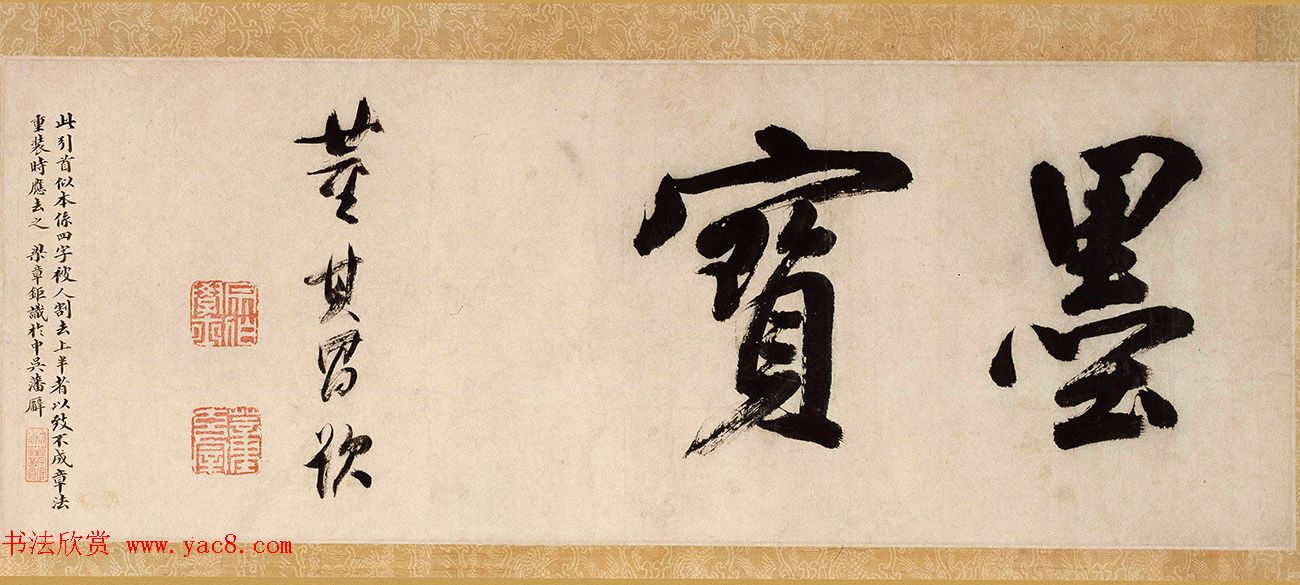 墨寶
董其昌
宗伯學士
董氏玄宰
此引首似本係四字被人割去上半者以致不成章法
重裝時應去之 梁章鉅識於中吳藩廨
书法欣赏 www.yac8.com